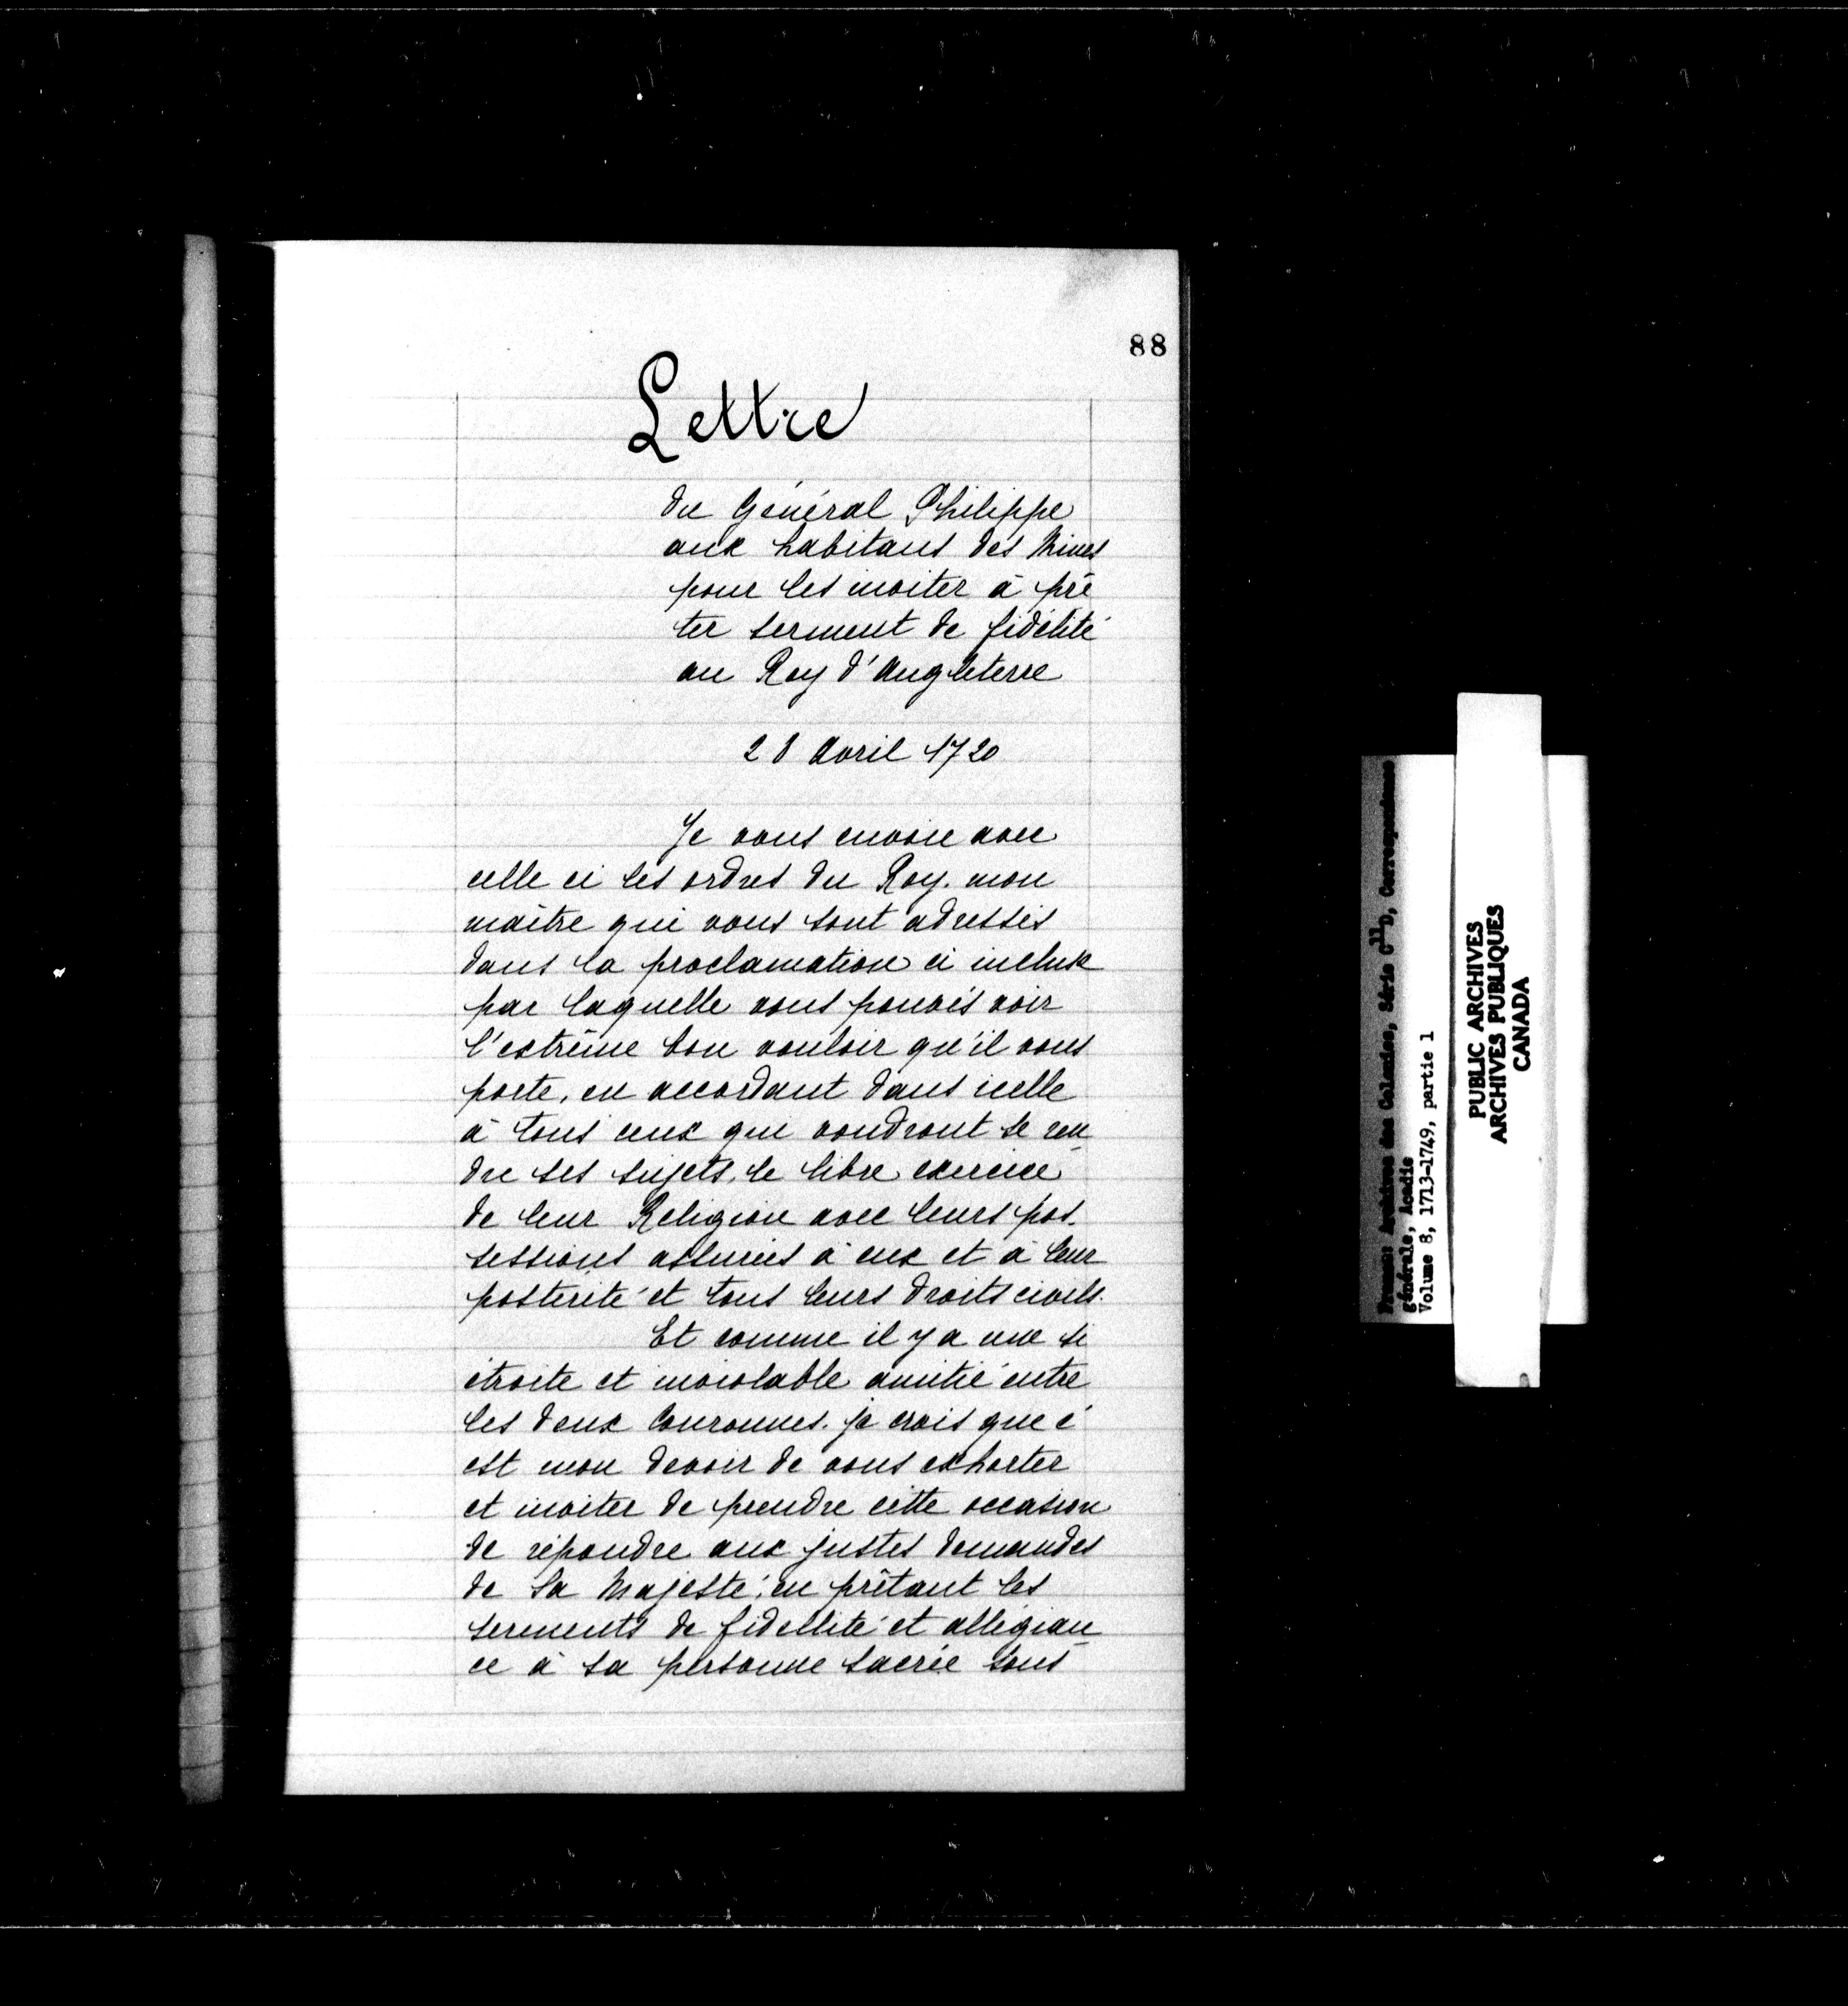 88
Lettre
du Général Philippe
aux habitans des Mines
pour les inviter à prê
ter serment de fidélité
au Roy d'Angleterre
28 Avril 1720
Je vous envoie avec
celle ci les ordres du Roy. mon
maître qui vous sont adressés
dans la proclamation ci incluse
par laquelle vous pouvés voir
l'extrême bon vouloir qu'il vous
porte, en accordant dans icelle
à tous ceux que voudront se ren
dre ses sujets, le libre exercice
de leur Religion avec leurs pos-
sessions assurées à eux et à leur
postérité et tous leurs droits civils.
Et comme il y a une si
étroite et inviolable amitié entre
les deux Couronnes. je crois que c'
est mon devoir de vous exhorter
et inviter de prendre cette occasion
de répondre aux justes demandes
de Sa Majesté, en prêtant les
serments de fidellité et allégian
ce à sa personne sacrée sous
Archives des Colonies, Série C11D, Correspondance
générale, Acadie
Volume 8, 1713-1749, partie 1
PUBLIC ARCHIVES
ARCHIVES PUBLIQUES
CANADA